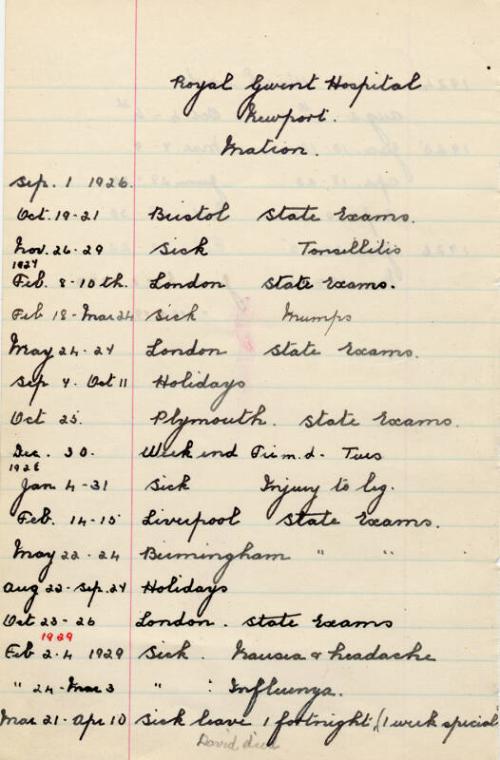 Royal Gwent Hospital
Newport.
Matron.
Sep. 1 1926.
Oct. 19-21 Bristol State Exams.
Nov. 26-29 Sick Tonsillitis
1927
Feb. 8-10th. London State Exams.
Feb 18-Mar 24 Sick Mumps
May 24-27 London State Exams.
Sep 7. Oct 11 Holidays
Oct 25. Plymouth. State Exams.
Dec. 30. Week end Fri m.d. Tues
1928
Jan 4-31 Sick Injury to leg.
Feb. 14-15 Liverpool State Exams.
May 22-24 Birmingham " "
Aug 22-Sep. 27 Holidays
Oct 23-26 London. State Exams
1929
Feb 2-4 1929 Sick. Nausea & headache
" 24-Mar 3 " : Influenza.
Mar 21-Apr 10 Sick leave 1 fortnight (1 week special
David died